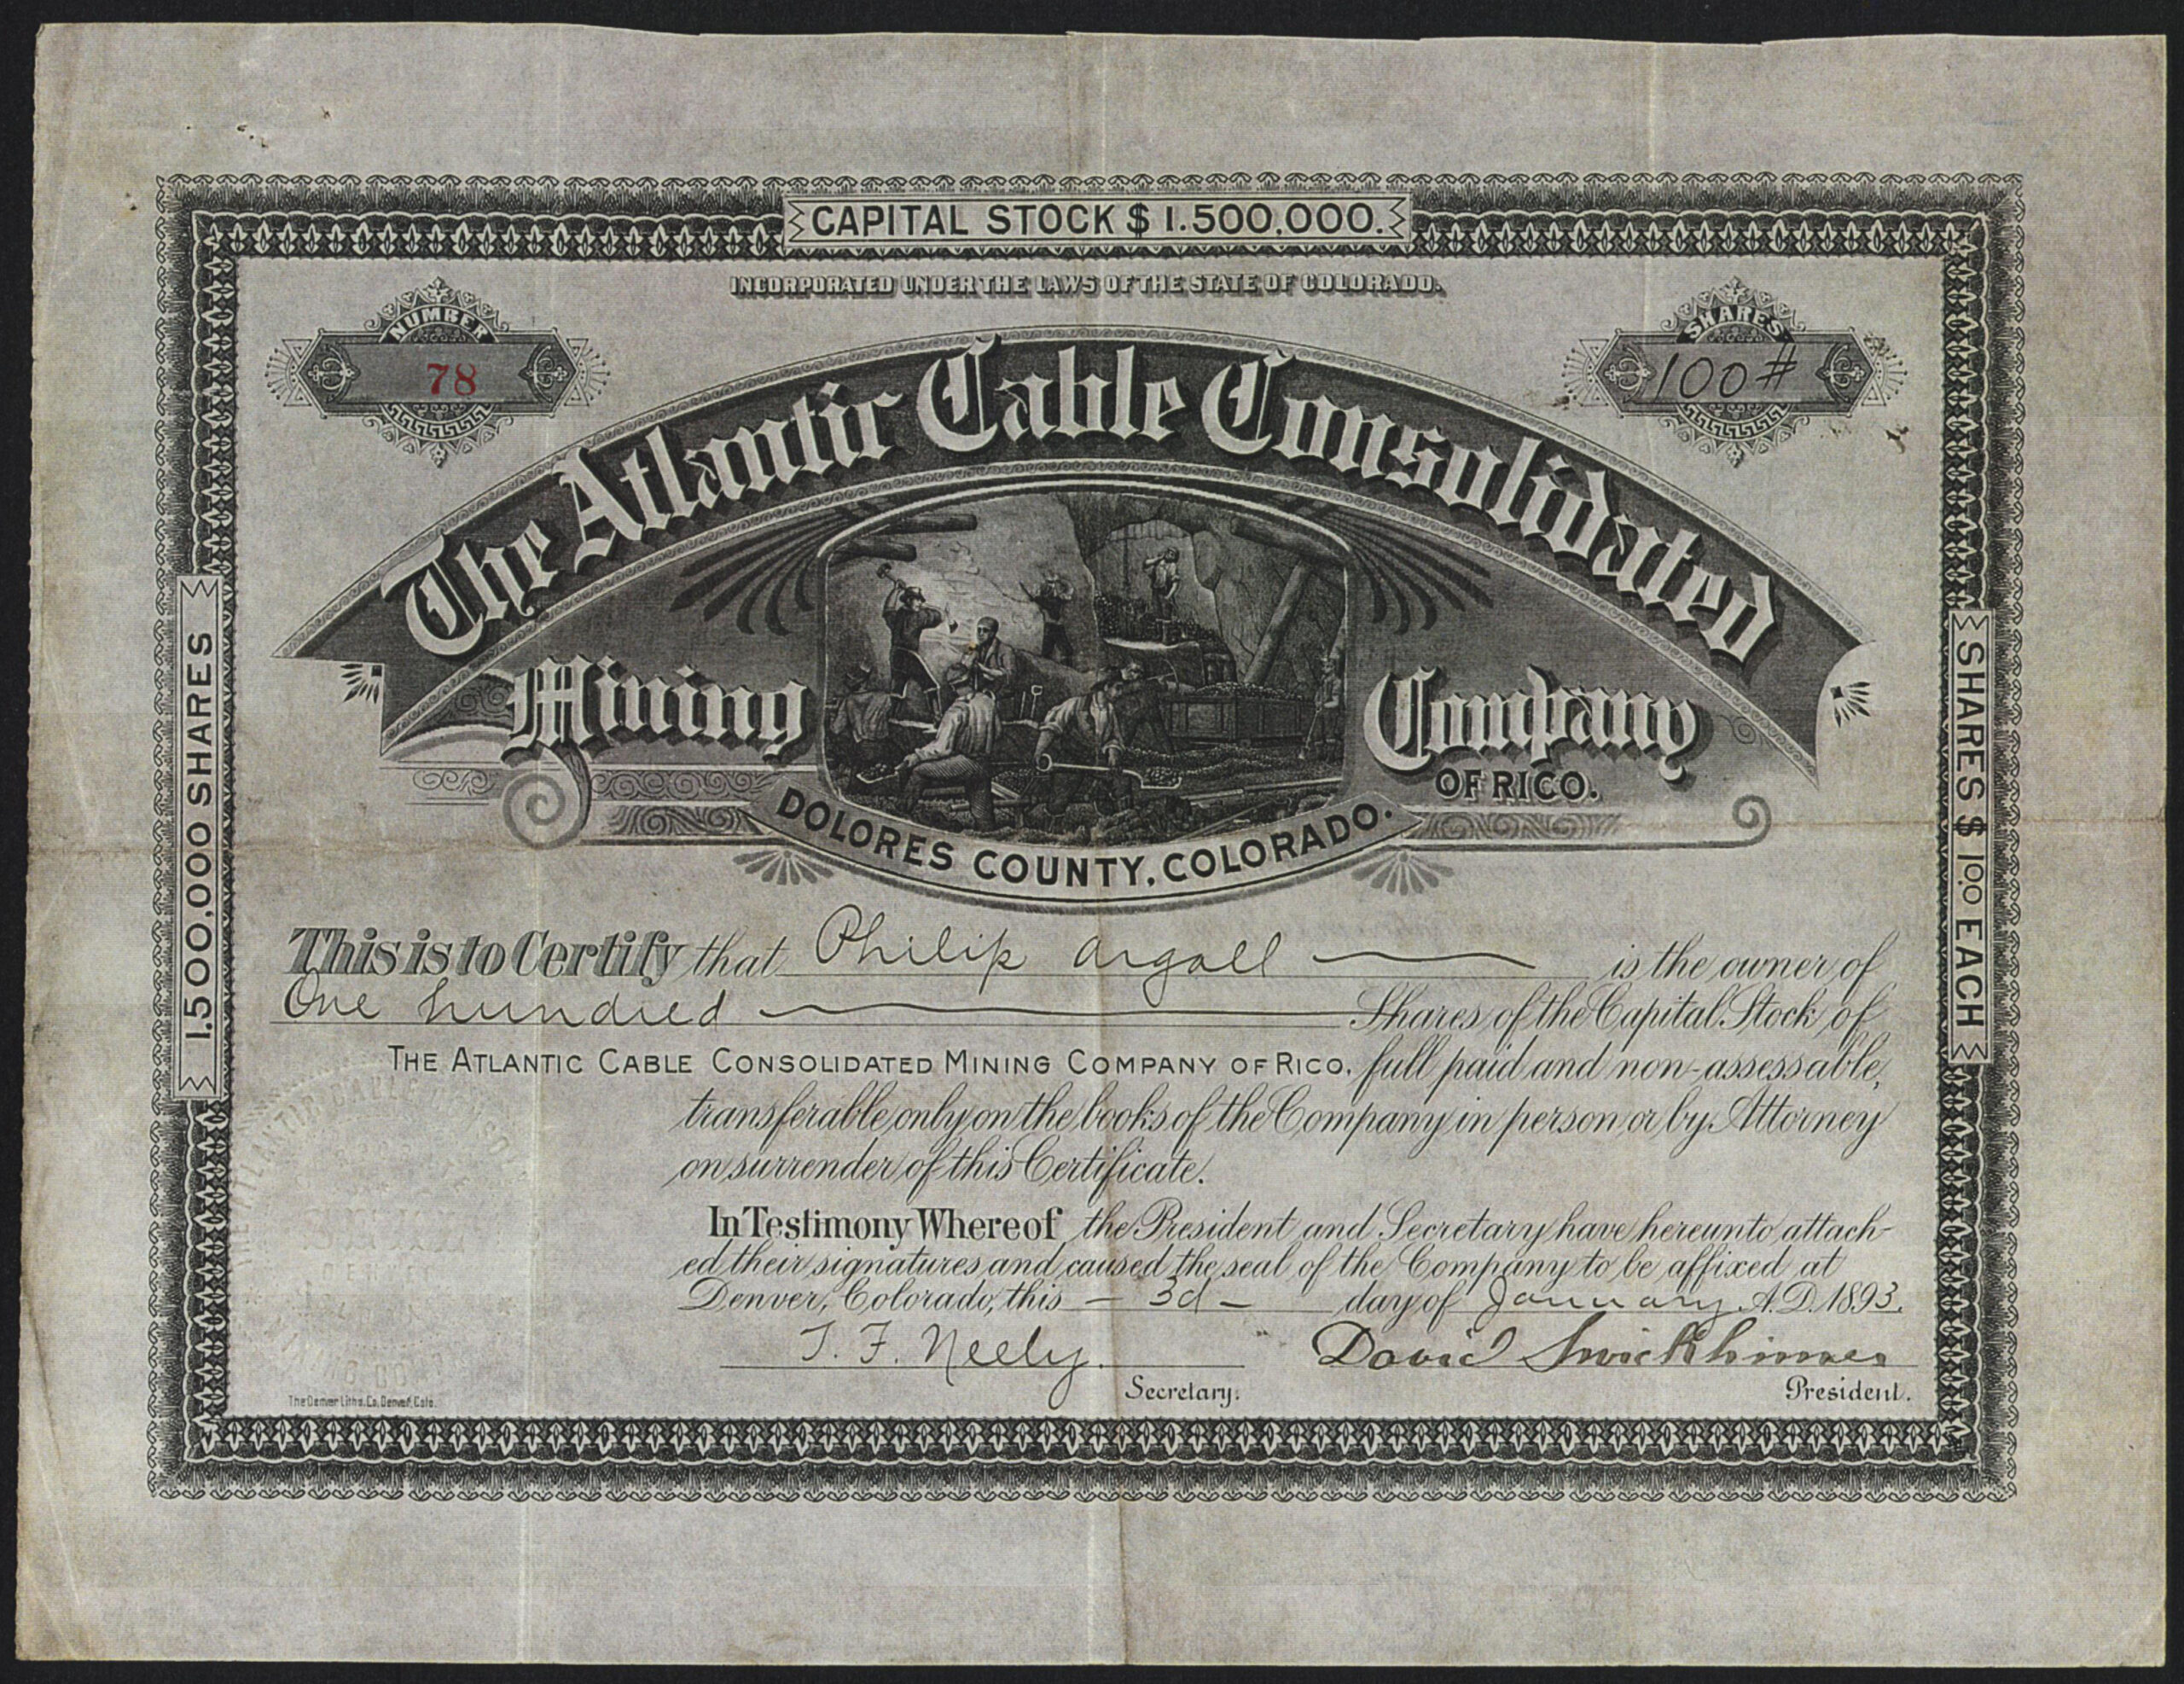 CAPITAL STOCK $ 1.500.000.
INCORPORATED UNDER THE LAWS OF THE STATE OF COLORADO.
NUMBER
78
SHARES
100#
The Atlantic Cable Consolidated
Mining Company
OF RICO.
DOLORES COUNTY, COLORADO.
1.500.000 SHARES
SHARES $ 1.00 EACH
This is to Certify that Philip Argall is the owner of
One hundred Shares of the Capital Stock of
THE ATLANTIC CABLE CONSOLIDATED MINING COMPANY OF RICO, full paid and non-assessable,
transferable only on the books of the Company in person or by Attorney
on surrender of this Certificate.
In Testimony Whereof the President and Secretary have hereunto attach-
ed their signatures and caused the seal of the Company to be affixed at
Denver, Colorado, this - 3d - day of January A.D. 1893.
T. F. Neely. David Swickhimer
Secretary. President.
The Denver Litho. Co. Denver, Colo.